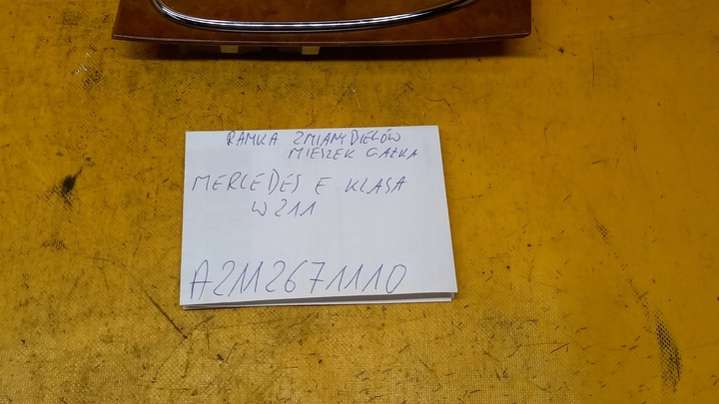 RAMKA ZMIANY BIEGÓW
MIESZEK GAŁKA
MERCEDES E KLASA
W211
A2112671110